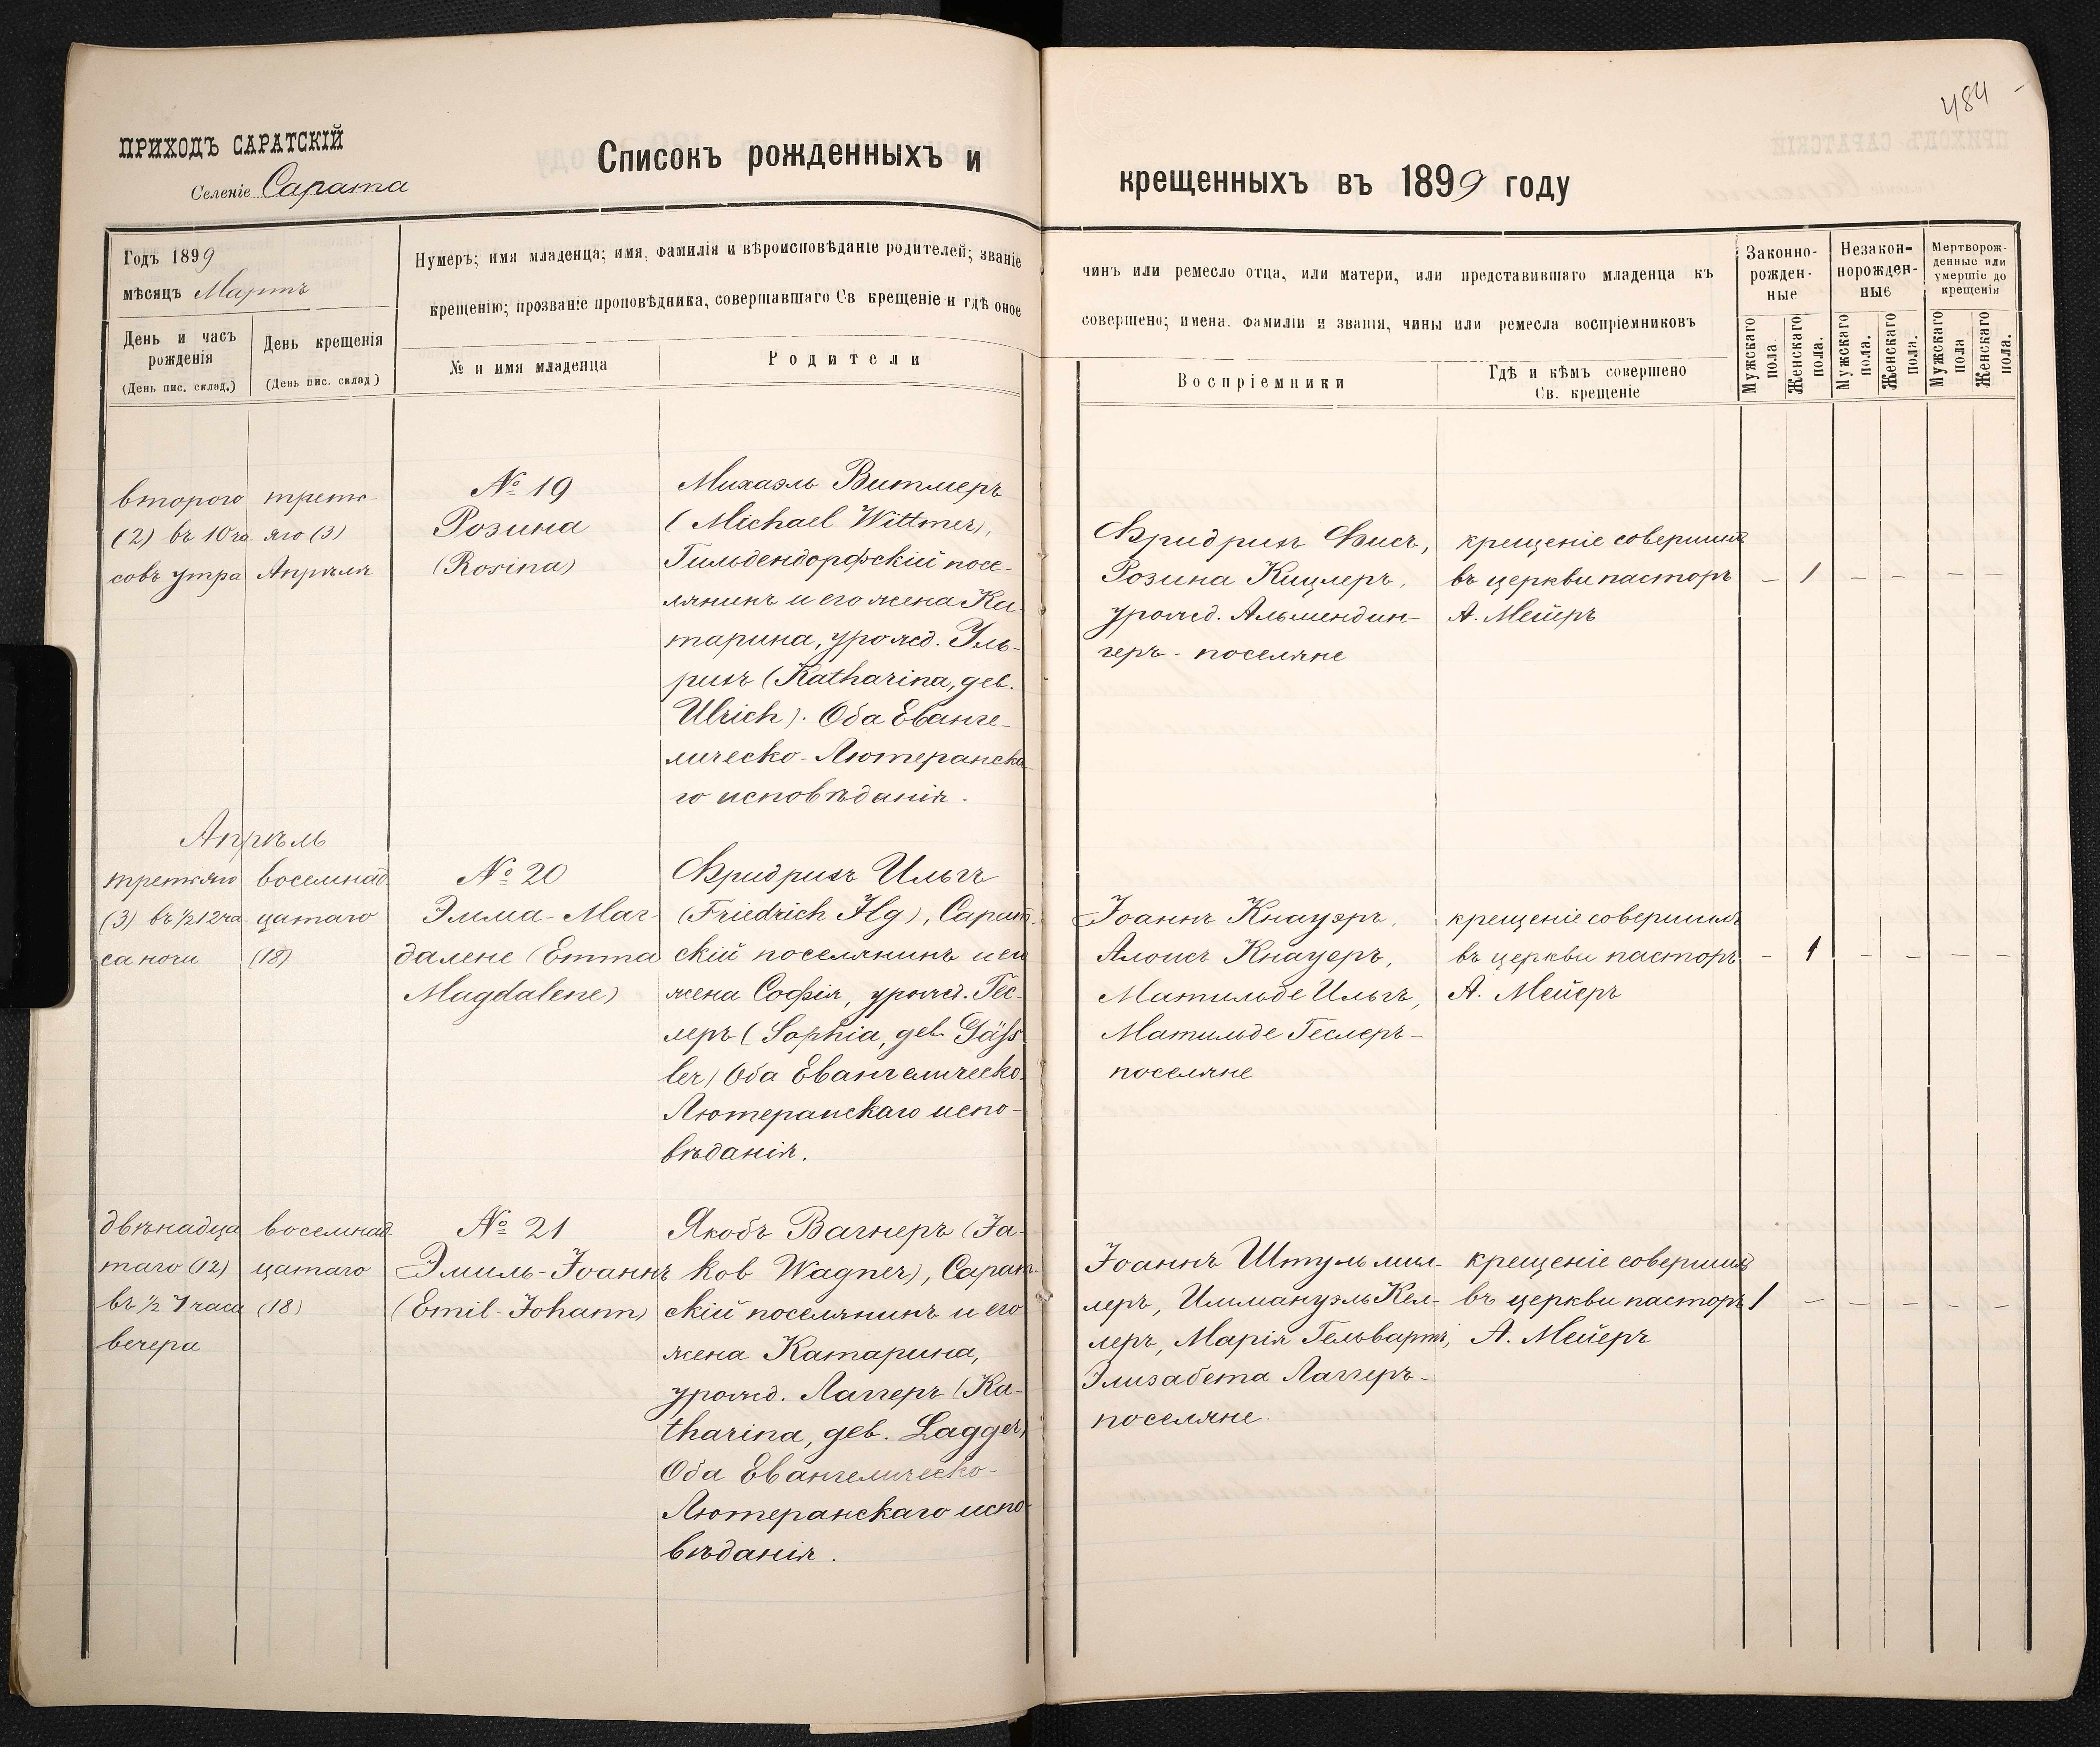 484
ПРИХОДЪ САРАТСКІЙ
Селеніе Сарата
Списокъ рожденныхъ и
крещенныхъ въ 1899 году
Годъ 1899
мѣсяцъ Мартъ
День и часъ
рожденія
(День пис. склад.)
День крещенія
(День пис. склад)
Нумеръ; имя младенца; имя, фамилія и вѣроисповѣданіе родителей; званіе
крещенію; прозваніе проповѣдника, совершавшаго Св крещеніе и гдѣ оное
№ и имя младенца
Родители
чинъ или ремесло отца, или матери, или представившаго младенца къ
совершено; имена. фамиліи и званія, чины или ремесла воспріемниковъ
Воспріемники
Гдѣ и кѣмъ совершено
Св. крещеніе
Законно-
рожден-
ные
Незакон-
норожден-
ные
Мертворож-
денные или
умершіе до
крещенія
Мужскаго
пола.
Женскаго
пола.
Мужскаго
пола.
Женскаго
пола.
Мужскаго
пола
Женскаго
пола.
второго
(2) въ 10 ча
совъ утра
треть-
яго (3)
Апрѣля
№ 19
Розина
(Rosina)
Михаэль Витмеръ
(Michael Wittmer),
Гильдендорфскій посе-
лянинъ и его жена Ка-
тарина, урожд. Уль-
рихъ (Katharina, geb.
Ulrich). Оба Еванге-
лическо-Лютеранска-
го исповѣданія.
Фридрихъ Фисъ,
Розина Кицлеръ,
урожд. Альмендин-
геръ - поселяне
крещеніе совершилъ
въ церкви пасторъ
А. Мейеръ
– 1 – – – –
Апрѣль
третьяго
(3) въ ½12 ча-
са ночи
восемнад
цатаго
(18)
№ 20
Эмма-Маг-
далене (Emma
Magdalene)
Фридрихъ Ильгъ
(Friedrich Ilg), Сарат-
скій поселянинъ и его
жена Софія, урожд. Гес-
леръ (Sophia, geb. Gäss
ler) Оба Евангелическо-
Лютеранскаго испо-
вѣданія.
Іоаннъ Кнауэръ,
Алоисъ Кнауеръ,
Матильде Ильгъ,
Матильде Геслеръ-
поселяне
крещеніе совершилъ
въ церкви пасторъ
А. Мейеръ
– 1 – – – –
двѣнадца
таго (12)
въ ½ 7 часа
вечера
восемнад.
цатаго
(18)
№ 21
Эмиль-Іоаннъ
(Emil-Johann)
Якобъ Вагнеръ (Ja-
kob Wagner), Сарат-
скій поселянинъ и его
жена Катарина,
урожд. Лаггеръ (Ka-
tharina, geb. Lagger)
Оба Евангелическо-
Лютеранскаго испо-
вѣданія.
Іоаннъ Штульмил-
леръ, Иммануэль Кел-
леръ, Марія Гельвартъ,
Элизабета Лаггеръ-
поселяне
крещеніе совершилъ
въ церкви пасторъ
А. Мейеръ
1 – – – – –